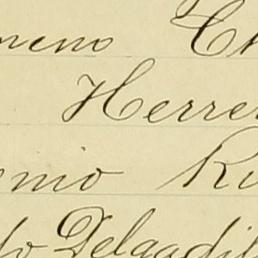 meno Ch
Herrer
enio Ru
do Delgadil